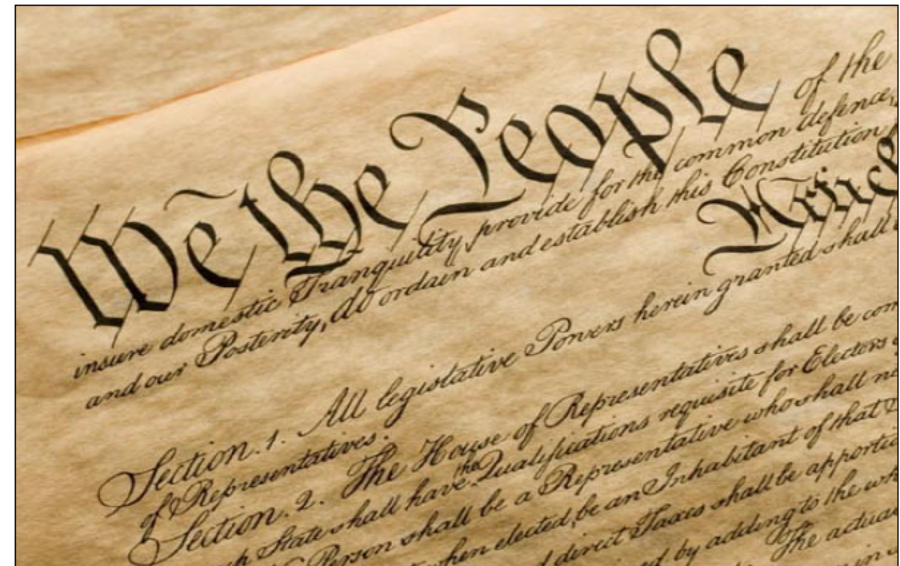 We the People of the
insure domestic Tranquility, provide for the common defence,
and our Posterity, do ordain and establish this Constitution
Article
Section. 1. All legislative Powers herein granted shall
of Representatives.
Section. 2. The House of Representatives shall be com
State shall have the Qualifications requisite for Electors
Person shall be a Representative who shall
when elected, be an Inhabitant of that
direct Taxes shall be apportio
by adding to the wh
The actua
in